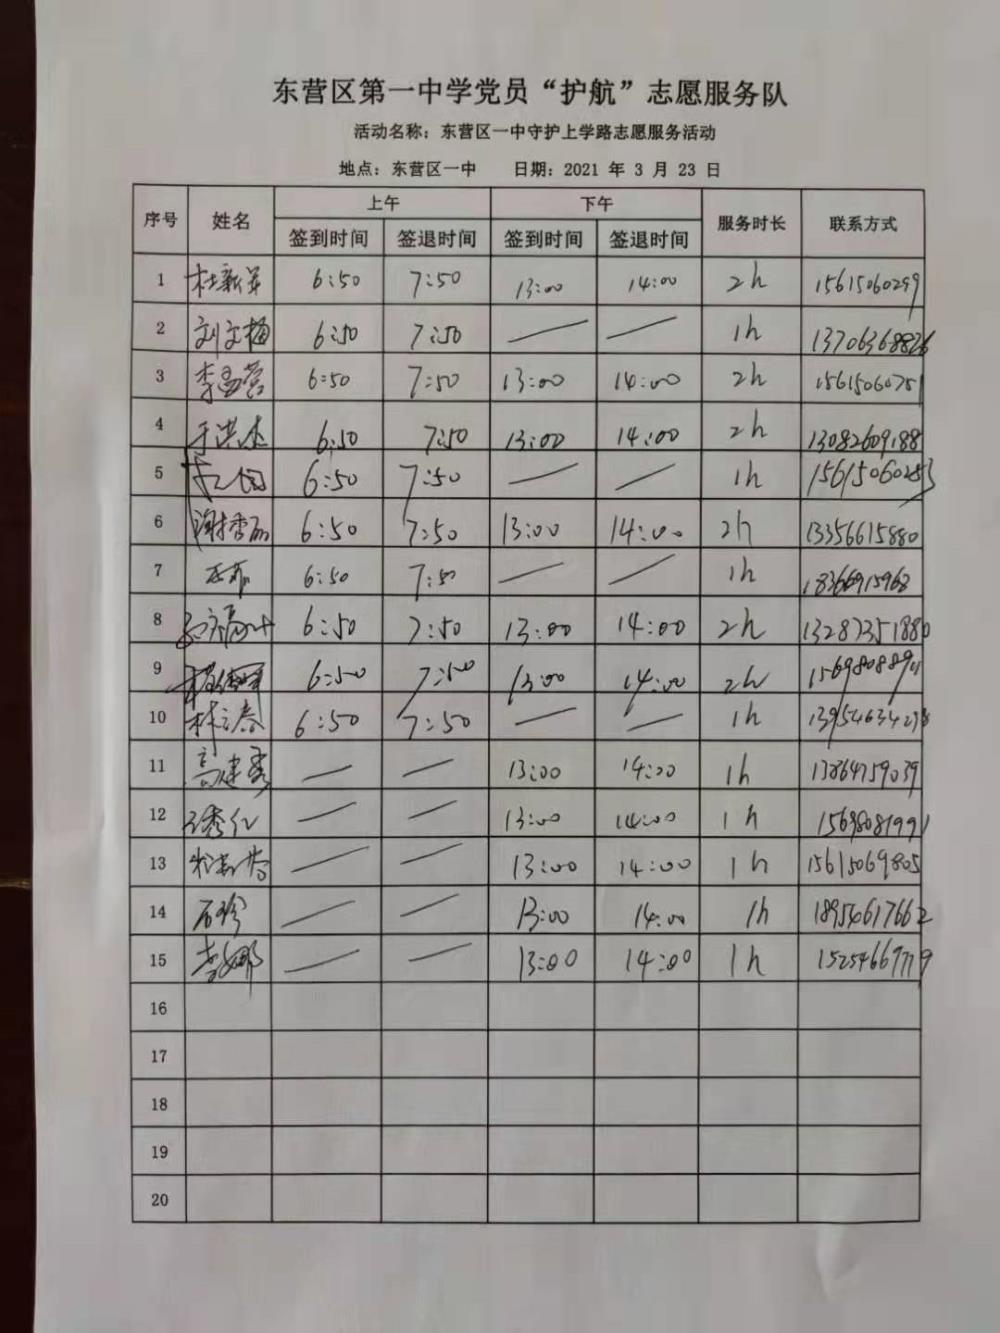 东营区第一中学党员“护航”志愿服务队
活动名称：东营区一中守护上学路志愿服务活动
地点：东营区一中 日期：2021 年 3 月 23 日
序号 姓名 上午 下午 服务时长 联系方式
签到时间 签退时间 签到时间 签退时间
1 6:50 7:50 13:00 14:00 2h 15615060299
2 刘文梅 6:50 7:50 — — 1h 13706368826
3 李孟营 6:50 7:50 13:00 14:00 2h 15615060751
4 于洪杰 6:50 7:50 13:00 14:00 2h 13082609188
5 6:50 7:50 — — 1h 15615060253
6 谢秀丽 6:50 7:50 13:00 14:00 2h 13356615880
7 6:50 7:50 — — 1h 18366915968
8 6:50 7:50 13:00 14:00 2h 13287351880
9 6:50 7:50 13:00 14:00 2h
10 林立春 6:50 7:50 — — 1h
11 高建秀 — — 13:00 14:00 1h 13864759039
12 — — 13:00 14:00 1h 15698081991
13 — — 13:00 14:00 1h 15615069805
14 石珍 — — 13:00 14:00 1h 18954617662
15 李娜 — — 13:00 14:00 1h
16
17
18
19
20